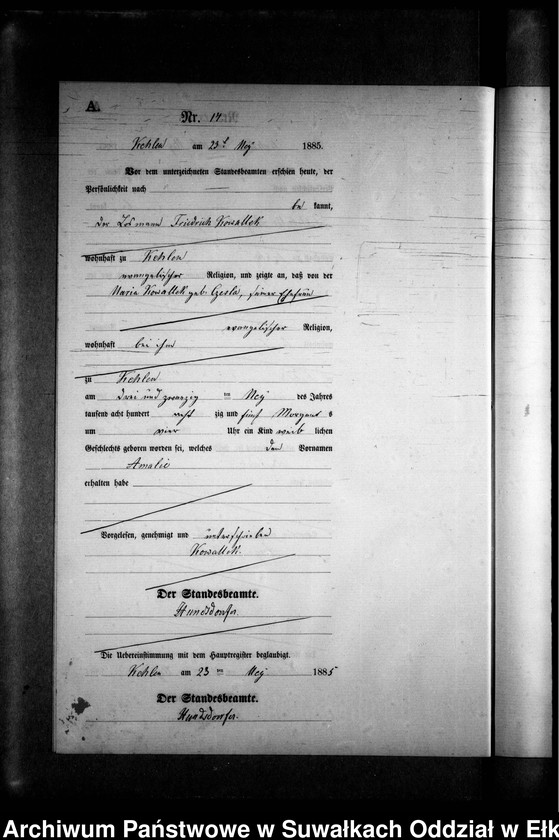 A.
Nr. 14
Kehlen am 23t Mey 1885.
Vor dem unterzeichneten Standesbeamten erschien heute, der
Persönlichkeit nach
be kannt,
der Losmann Friedrich Kowallek
wohnhaft zu Kehlen
evangelischer Religion, und zeigte an, daß von der
Maria Kowallek geb. Czesla, seiner Ehefrau
evangelischer Religion,
wohnhaft bei ihm
zu Kehlen
am drei und zwanzig ten Mey des Jahres
tausend acht hundert acht zig und fünf Morgens
um vier Uhr ein Kind weib lichen
Geschlechts geboren worden sei, welches den Vornamen
Amalie
erhalten habe
Vorgelesen, genehmigt und unterschrieben
Kowallek.
Der Standesbeamte.
Hundsdorfer.
Die Uebereinstimmung mit dem Hauptregister beglaubigt.
Kehlen am 23 ten Mey 1885
Der Standesbeamte.
Hundsdorfer.
Archiwum Państwowe w Suwałkach Oddział w Ełk